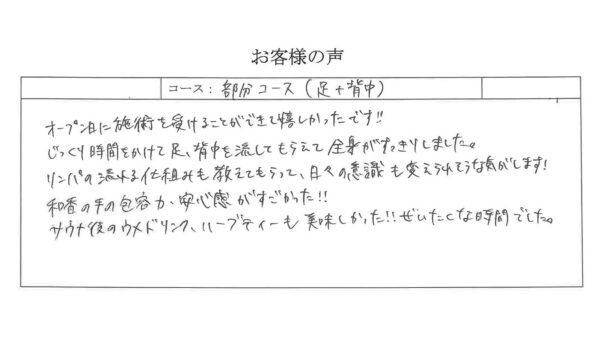 お客様の声
コース: 部分コース (足+背中)
オープン日に施術を受けることができて嬉しかったです!!
じっくり時間をかけて足、背中を流してもらえて全身がすっきりしました。
リンパの流れる仕組みも教えてもらって、日々の意識も変えられそうな気がします!
和香の手の包容力・安心感がすごかった!!
サウナ後のウメドリンク、ハーブティーも美味しかった!!ぜいたくな時間でした。